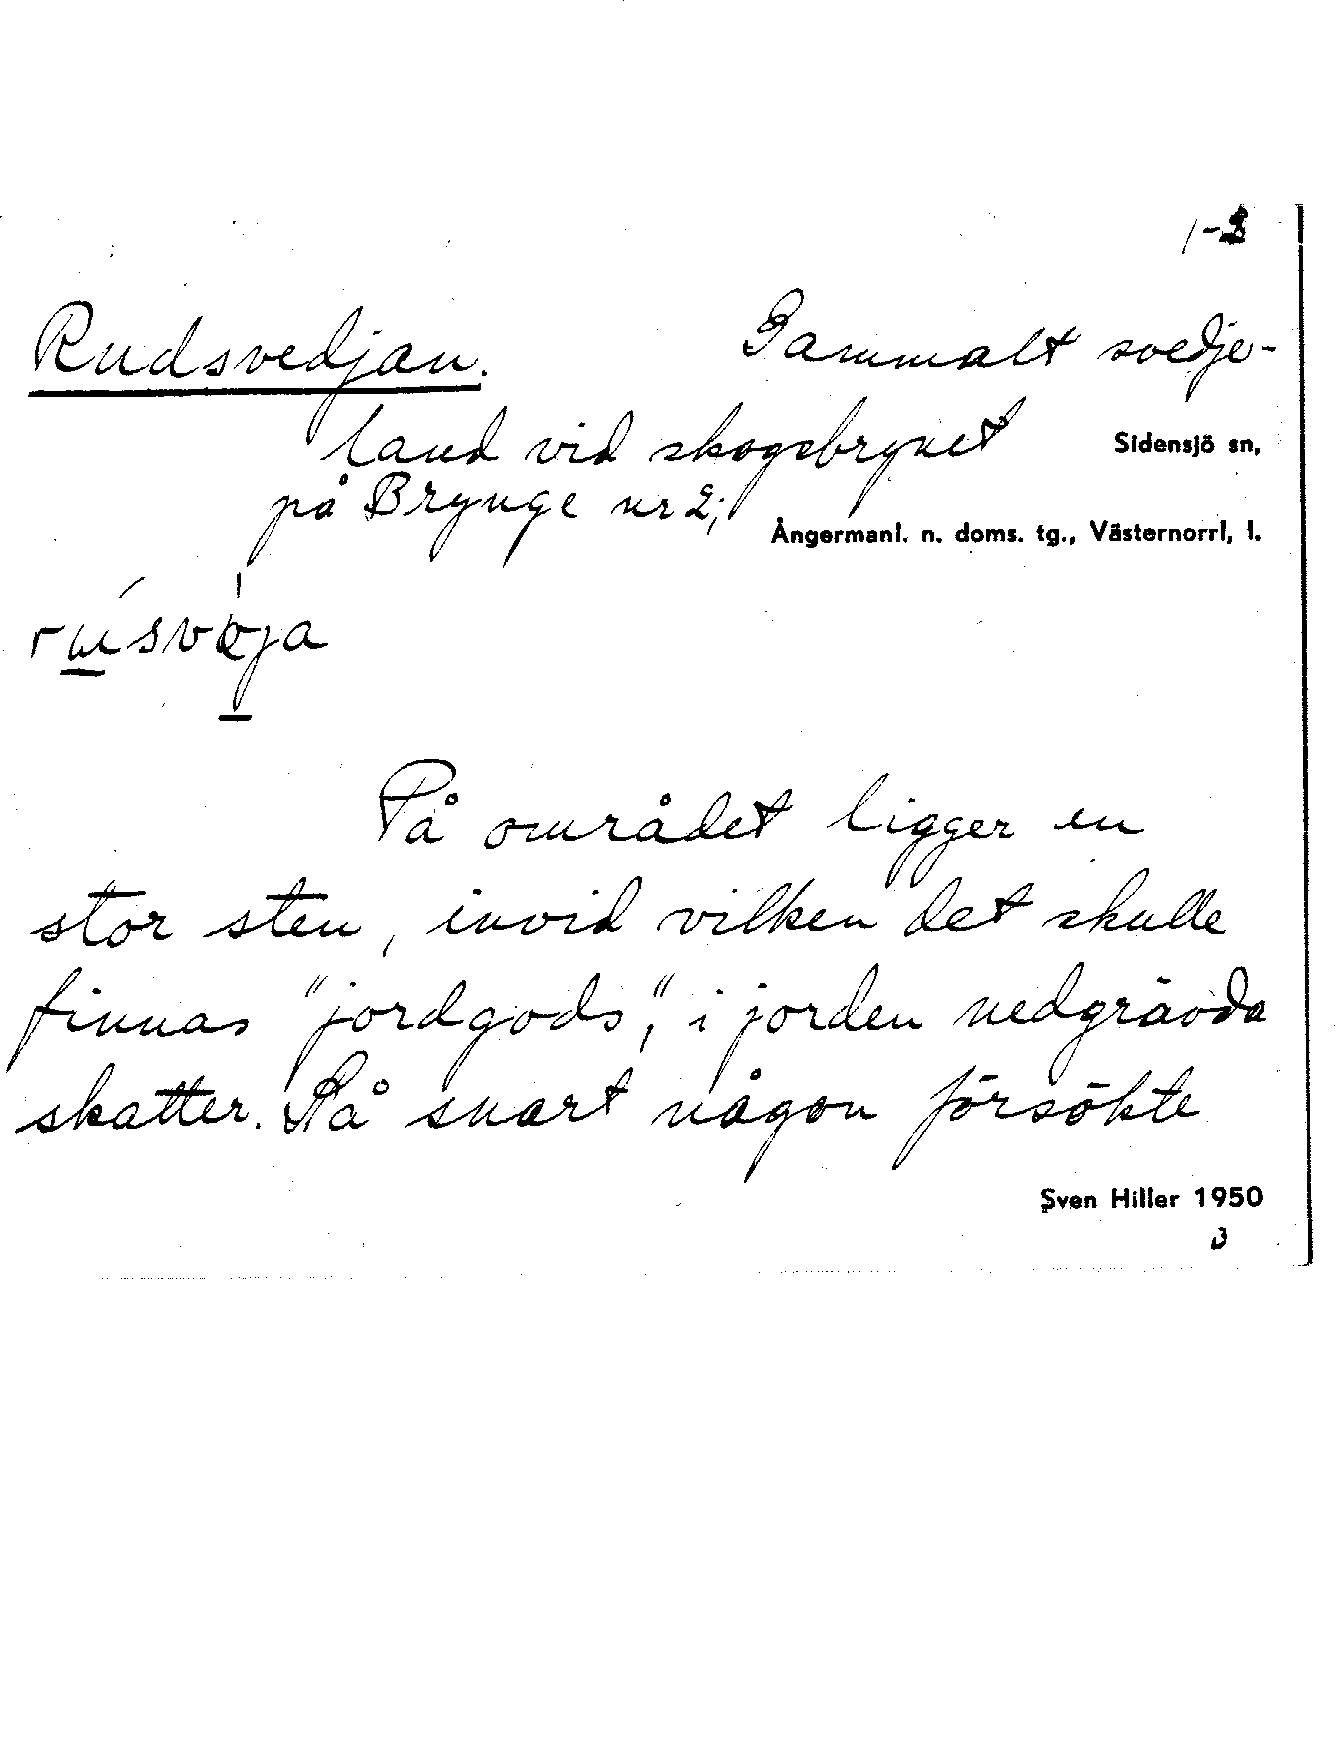 1-3
Rudsvedjan. Gammalt svedje-
land vid skogsbrynet Sidensjö sn,
på Brynge nr 2; Ångermanl. n. doms. tg., Västernorrl, l.
På området ligger en
stor sten, invid vilken det skulle
finnas "jordgods", i jorden nedgrävda
skatter. Så snart någon försökte
Sven Hiller 1950